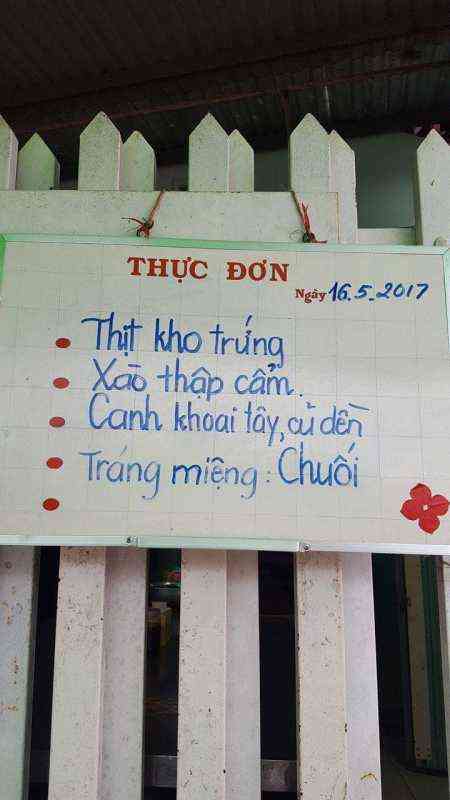 THỰC ĐƠN
Ngày 16.5.2017
Thịt kho trứng
Xào thập cẩm.
Canh khoai tây, củ dền
Tráng miệng: Chuối